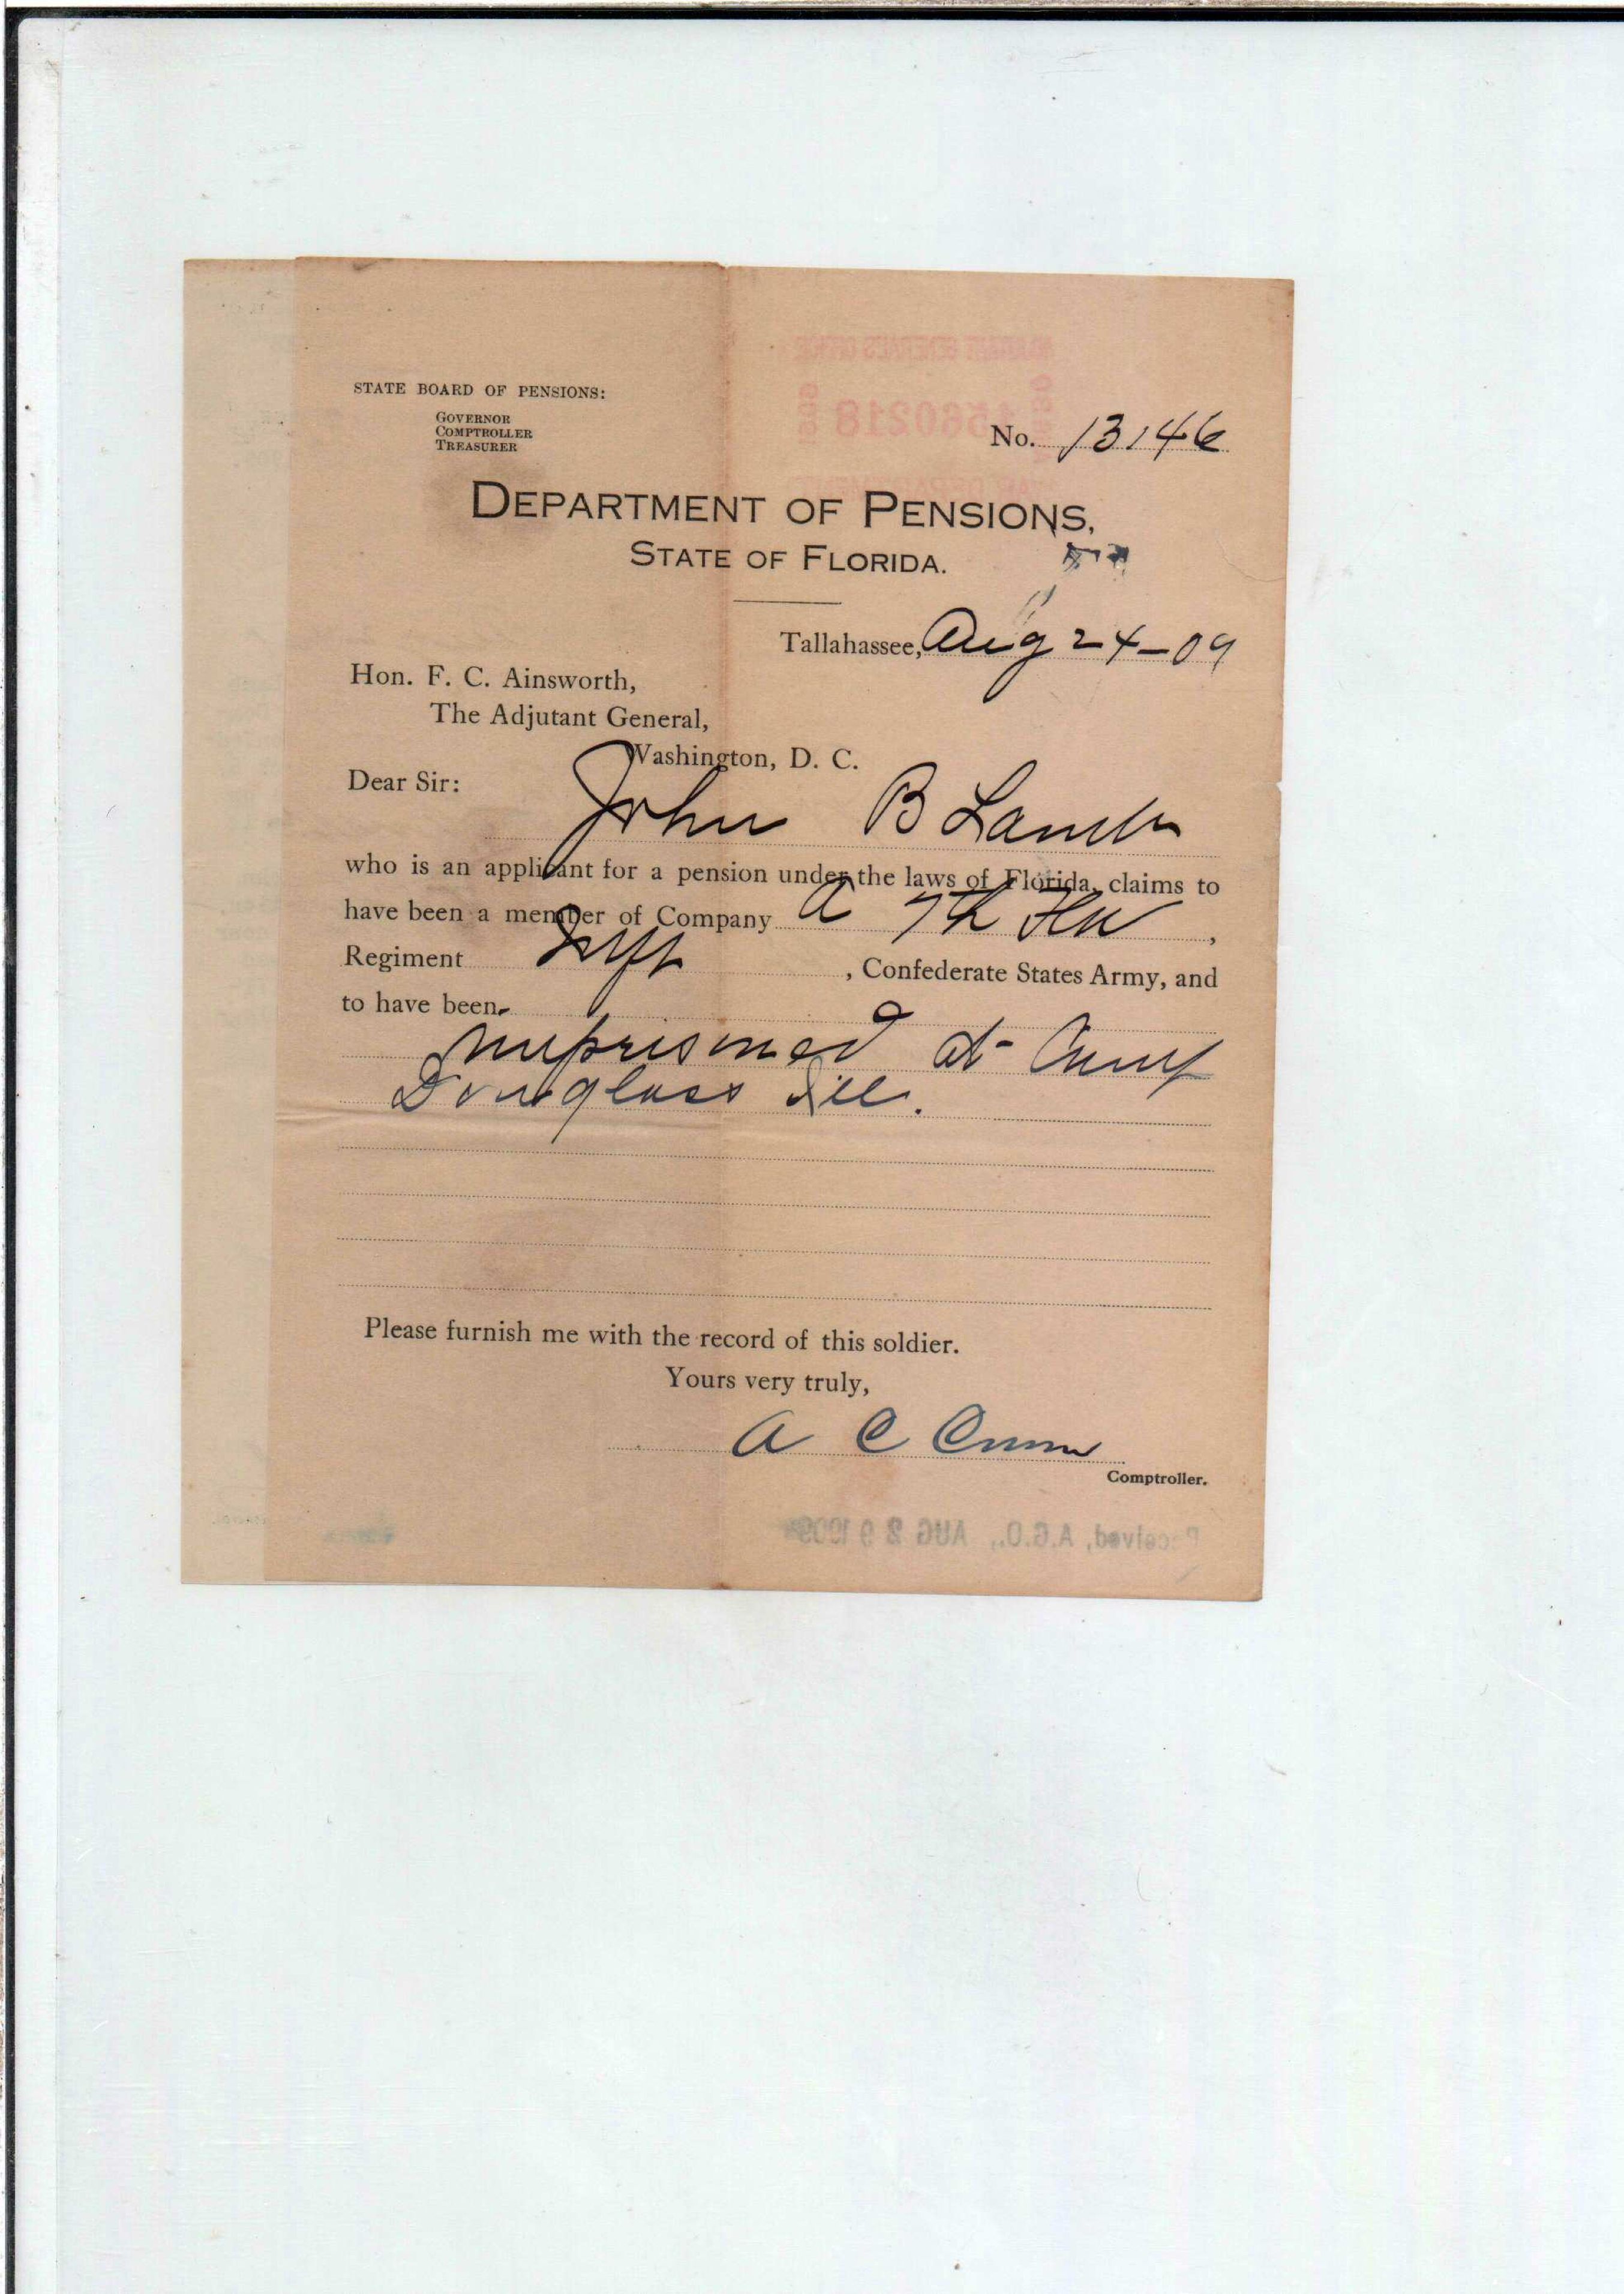 STATE BOARD OF PENSIONS:
GOVERNOR
COMPTROLLER
TREASURER
No. 13146
DEPARTMENT OF PENSIONS,
STATE OF FLORIDA.
Tallahassee, Aug 24-09
Hon. F. C. Ainsworth,
The Adjutant General,
Washington, D. C.
Dear Sir:
John B Lamb
who is an applicant for a pension under the laws of Florida, claims to
have been a member of Company A 7th Fla,
Regiment Inft, Confederate States Army, and
to have been
imprisoned at Camp
Douglass Ill.
Please furnish me with the record of this soldier.
Yours very truly,
A C Croom
Comptroller.
Received, A.G.O., AUG 29 1909